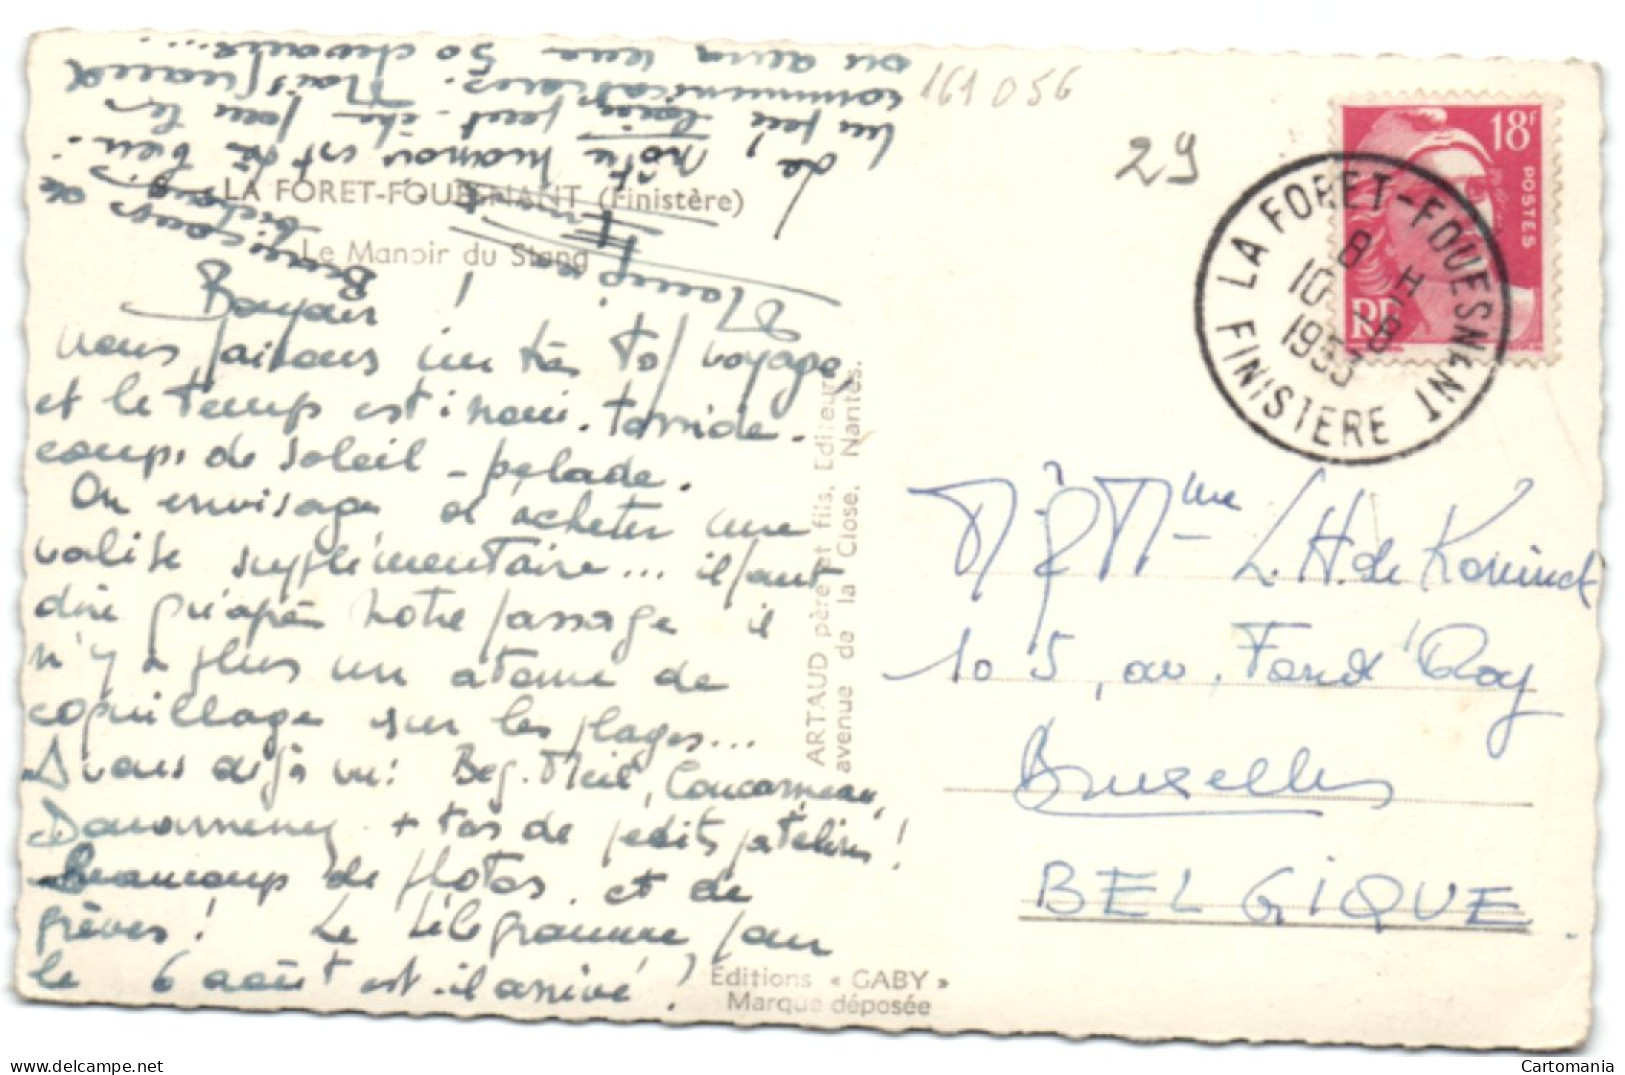 161056
29
18F
POSTES
RF
LA FORET-FOUESNANT
8 H
10-8
1953
FINISTERE
8 - LA FORET-FOUESNANT (Finistère)
Le Manoir du Stang
Bonjour !
nous faisons un très joli voyage,
et le temps est inoui. torride.
coups de soleil - pelade.
On envisage d'acheter une
valise supplémentaire... il faut
dire qu'après notre passage il
n'y a plus un atome de
coquillage sur les plages...
A vous déjà vu : Beg-Meil, Concarneau,
Douarnenez + tas de petits patelins !
Beaucoup de photos et de
grèves ! Le télégramme, pour
le 6 août est-il arrivé ?
Bisous de
notre manoir est très bien.
un peu loin peut-être pour les
communications. Mais quand
on aura leur 50 chevaux...
ARTAUD père et fils, Editeurs
avenue de la Close. Nantes.
Editions « GABY »
Marque déposée
M & Mme L.H. de Koninck
105, av. Fond' Roy
Bruxelles
BELGIQUE
Delcampe.net
Cartomania